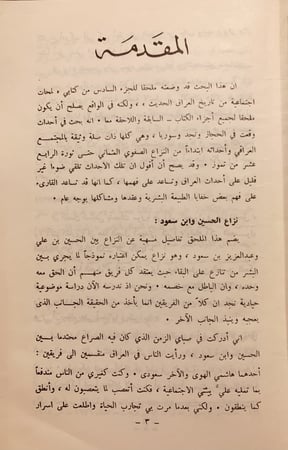 المقدمة
ان هذا البحث قد وضعته ملحقا للجزء السادس من كتابي « لمحات
اجتماعية من تاريخ العراق الحديث » ، ولكنه في الواقع يصلح أن يكون
ملحقا لجميع أجزاء الكتاب - السابقة واللاحقة معا ٠ انه بحث في أحداث
وقعت في الحجاز ونجد وسوريا ، وهي كلها ذات صلة وثيقة بالمجتمع
العراقي وأحداثه ابتداءاً من النزاع الصفوي العثماني حتى ثورة الرابع
عشر من تموز ٠ وقد يصح أن أقول ان تلك الاحداث تلقي ضوءا غير
قليل على أحداث العراق وتساعد على فهمها ، كما انها قد تساعد القارىء
على فهم بعض خفايا الطبيعة البشرية وعقدها ومشاكلها بوجه عام ٠
نزاع الحسين وابن سعود :
يضم هذا الملحق تفاصيل مسهبة عن النزاع بين الحسين بن علي
وعبدالعزيز بن سعود ، وهو نزاع يمكن اعتباره نموذجاً لما يجري بين
البشر من تنازع على البقاء حيث يعتقد كل فريق منهم أن الحق معه
وحده ، وان الباطل مع خصمه ٠ ونحن اذ ندرسه الآن دراسة موضوعية
حيادية نجد ان كلا من الفريقين انما يأخذ من الحقيقة الجانب الذى
يعجبه وينبذ الجانب الآخر ٠
اني أدركت في صباي الزمن الذي كان فيه الصراع محتدما بين
الحسين وابن سعود ، ورأيت الناس في العراق منقسمين الى فريقين :
أحدهما هاشمي الهوى والآخر سعودى ٠ وكنت كغيري من الناس مندفعاً
بما تمليه علي بيئتي الاجتماعية ، فكنت أتعصب لما يتعصبون له ، وأنطق
كما ينطقون ٠ ولكني بعدما مرت بي تجارب الحياة واطلعت على أسرار
- ٣ -